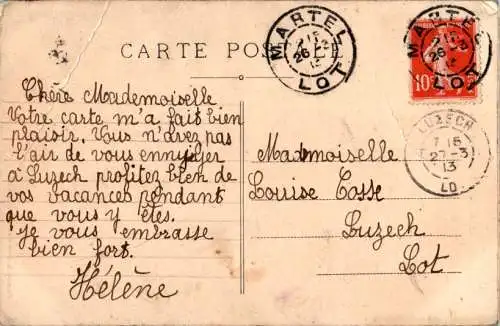 CARTE POSTALE
MARTEL
26
13
LOT
MARTEL
26
13
LOT
10c
LUZECH
7 15
27-3
13
LOT
Chère Mademoiselle
Votre carte m'a fait bien
plaisir. Vous n'avez pas
l'air de vous ennuyer
à Luzech profitez bien de
vos vacances pendant
que vous y êtes.
je vous embrasse
bien fort.
Hélène
Mademoiselle
Louise Cosse
Luzech
Lot